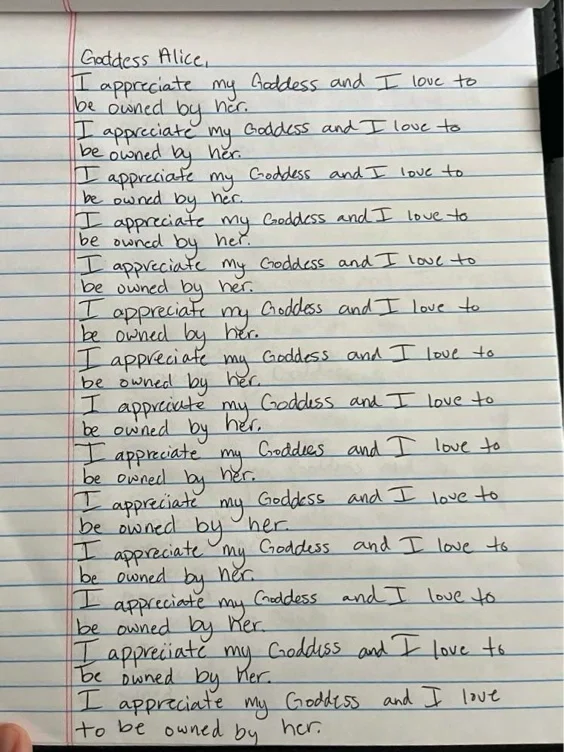 Goddess Alice,
I appreciate my Goddess and I love to
be owned by her.
I appreciate my Goddess and I love to
be owned by her.
I appreciate my Goddess and I love to
be owned by her.
I appreciate my Goddess and I love to
be owned by her.
I appreciate my Goddess and I love to
be owned by her.
I appreciate my Goddess and I love to
be owned by her.
I appreciate my Goddess and I love to
be owned by her.
I appreciate my Goddess and I love to
be owned by her.
I appreciate my Goddess and I love to
be owned by her.
I appreciate my Goddess and I love to
be owned by her.
I appreciate my Goddess and I love to
be owned by her.
I appreciate my Goddess and I love to
be owned by her.
I appreciate my Goddess and I love to
be owned by her.
I appreciate my Goddess and I love
to be owned by her.